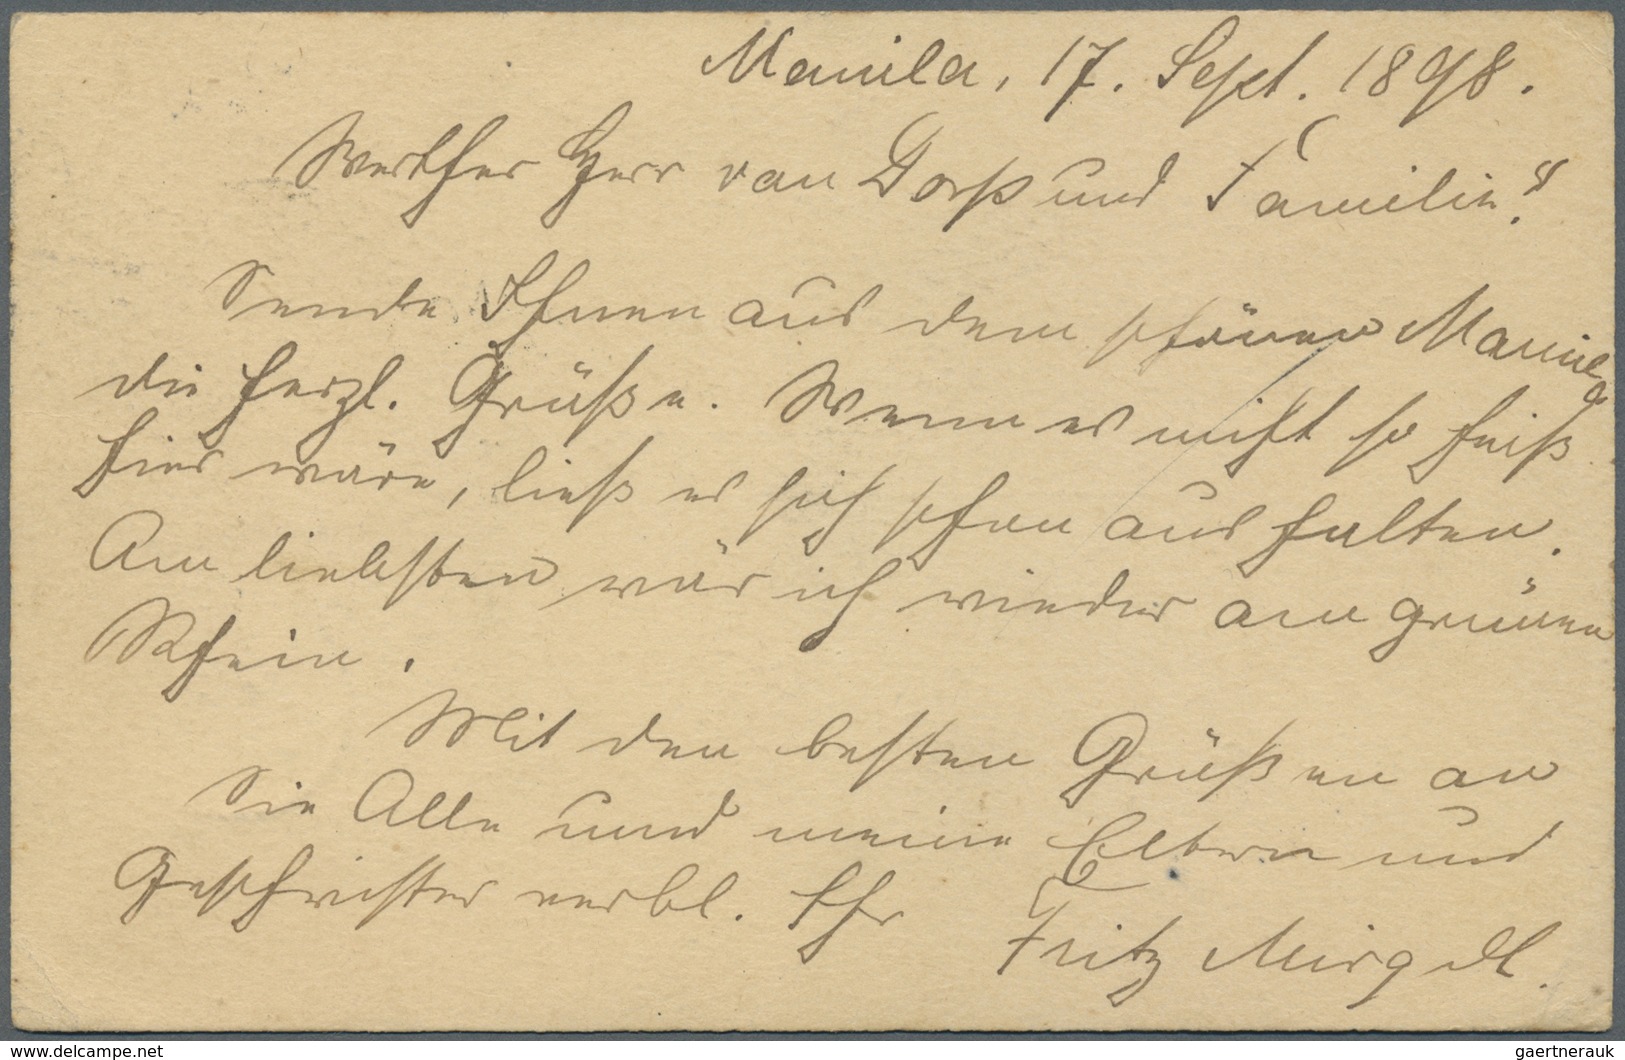 Manila, 17. Sept. 1898.
Werther Herr van und Familie!
Sende Ihnen aus dem schönen Manila
die herzl. Grüße. Wenn es nicht so heiß
hier wäre, ließ es sich schon aushalten.
Am liebsten wär ich wieder am grünen
Rhein.
Mit den besten Grüßen an
Sie Alle und meine Eltern und
Geschwister verbl. Ihr
Fritz
gaertnerauk
www.delcampe.net